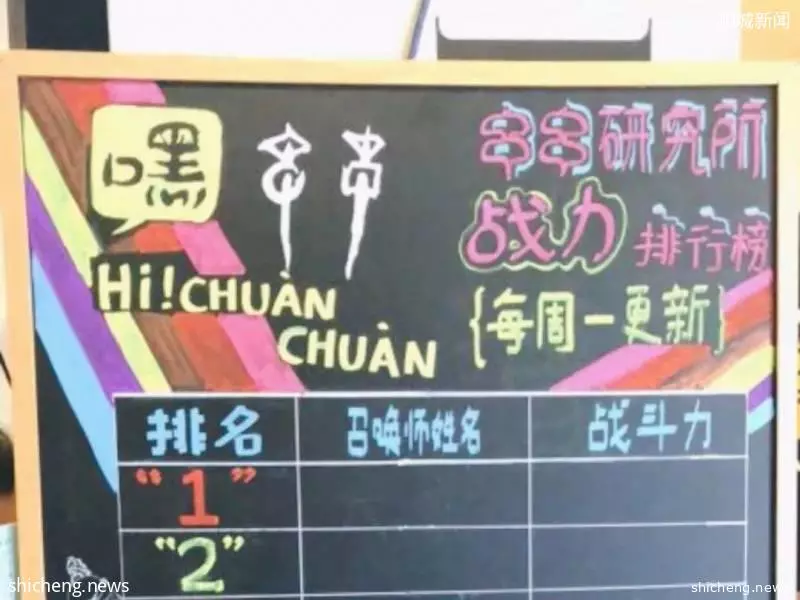 狮城新闻
嘿 串串
Hi! CHUÀN
CHUÀN
串串研究所
战力 排行榜
{每周一更新}
排名 召唤师姓名 战斗力
“1”
“2”
shicheng.news
shicheng.news